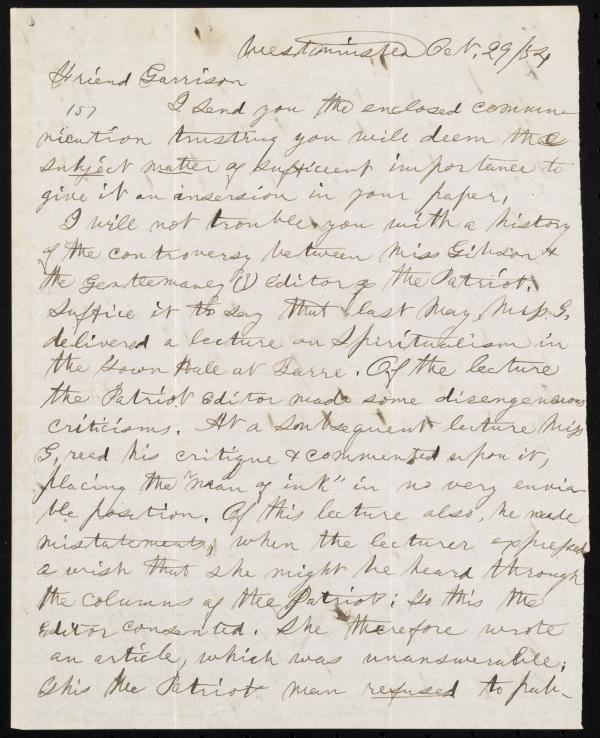 Westminster Oct. 29/54
Friend Garrison
157 I send you the enclosed commu-
nication trusting you will deem the
subject matter of sufficient importance to
give it an insersion in your paper.
I will not trouble you with a history
of the controversy between Miss Gibson &
the Gentlemaney (?) Editor of the Patriot.
Suffice it to say that last May, Miss G.
delivered a lecture on Spiritualism in
the Town Hall at Barre. Of the lecture
the Patriot Editor made some disengenuous
criticisms. At a sonbsequent lecture Miss
G, read his critique & commented upon it,
placing the "man of ink" in no very envia-
ble position. Of this lecture also, he made
mistatements, when the lecturer expressed
a wish that she might be heard through
the columns of the Patriot; to this the
Editor consented. She therefore wrote
an article, which was unanswerable;
this the Patriot man refused to pub-